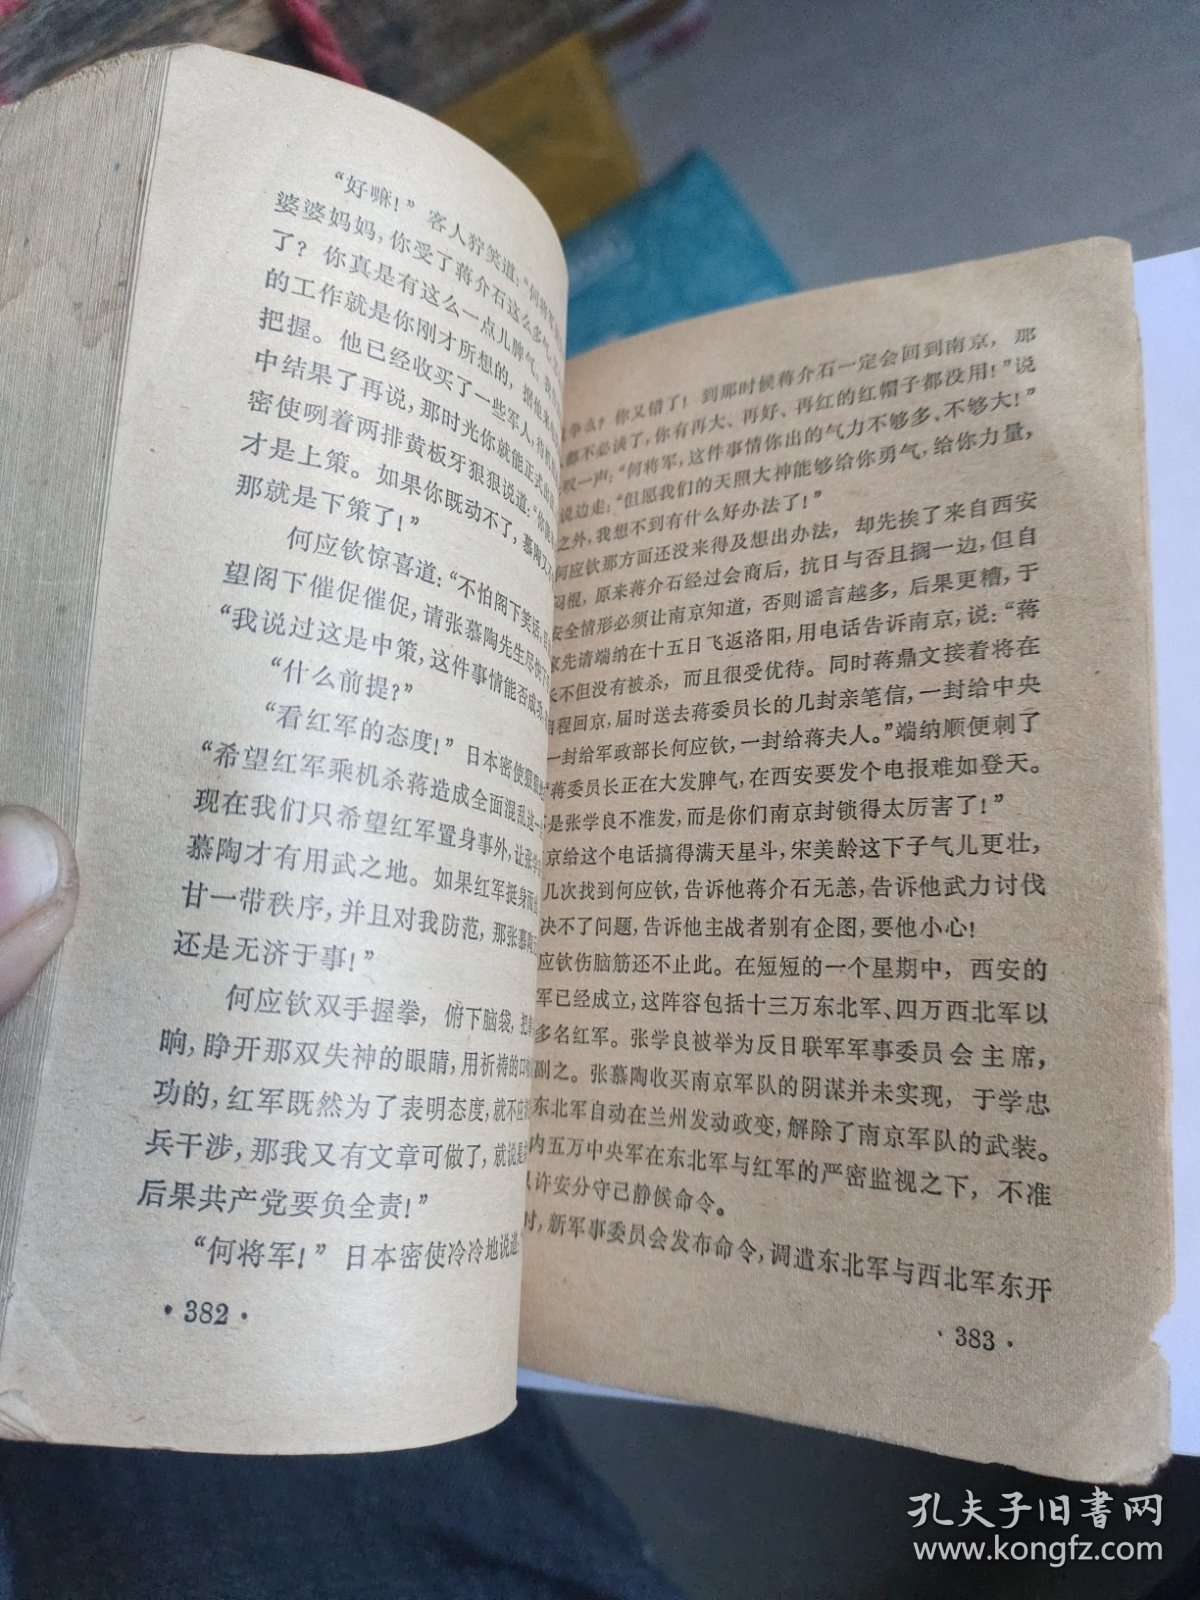 “好嘛！”客人狞笑道：“何将军
婆婆妈妈，你受了蒋介石这么多气
了？你真是有这么一点儿脾气。我
的工作就是你刚才所想的，据他来
把握。他已经收买了一些军人，待机
中结果了再说，那时光你就能正式出
密使咧着两排黄板牙狠狠说道：“你能
才是上策。如果你既动不了，慕陶又不
那就是下策了！”
何应钦惊喜道：“不怕阁下笑话，
望阁下催促催促，请张慕陶先生尽快
“我说过这是中策，这件事情能否成功，
“什么前提？”
“看红军的态度！”日本密使狠狠
“希望红军乘机杀蒋造成全面混乱这一
现在我们只希望红军置身事外，让张学
慕陶才有用武之地。如果红军挺身而
甘一带秩序，并且对我防范，那张慕陶
还是无济于事！”
何应钦双手握拳，俯下脑袋，把
晌，睁开那双失神的眼睛，用祈祷的口
功的，红军既然为了表明态度，就不应
兵干涉，那我又有文章可做了，就说是
后果共产党要负全责！”
“何将军！”日本密使冷冷地说道：
·382·
争么？你又错了！到那时候蒋介石一定会回到南京，那
都不必谈了，你有再大、再好、再红的红帽子都没用！”说
叹一声：“何将军，这件事情你出的气力不够多、不够大！”
说边走：“但愿我们的天照大神能够给你勇气，给你力量，
之外，我想不到有什么好办法了！”
何应钦那方面还没来得及想出办法，却先挨了来自西安
闷棍，原来蒋介石经过会商后，抗日与否且搁一边，但自
安全情形必须让南京知道，否则谣言越多，后果更糟，于
家先请端纳在十五日飞返洛阳，用电话告诉南京，说：“蒋
长不但没有被杀，而且很受优待。同时蒋鼎文接着将在
程回京，届时送去蒋委员长的几封亲笔信，一封给中央
一封给军政部长何应钦，一封给蒋夫人。”端纳顺便刺了
“蒋委员长正在大发脾气，在西安要发个电报难如登天。
是张学良不准发，而是你们南京封锁得太厉害了！”
京给这个电话搞得满天星斗，宋美龄这下子气儿更壮，
几次找到何应钦，告诉他蒋介石无恙，告诉他武力讨伐
决不了问题，告诉他主战者别有企图，要他小心！
应钦伤脑筋还不止此。在短短的一个星期中，西安的
军已经成立，这阵容包括十三万东北军、四万西北军以
多名红军。张学良被举为反日联军军事委员会主席，
副之。张慕陶收买南京军队的阴谋并未实现，于学忠
东北军自动在兰州发动政变，解除了南京军队的武装。
内五万中央军在东北军与红军的严密监视之下，不准
许安分守己静候命令。
时，新军事委员会发布命令，调遣东北军与西北军东开
·383·
孔夫子旧书网
www.kongfz.com